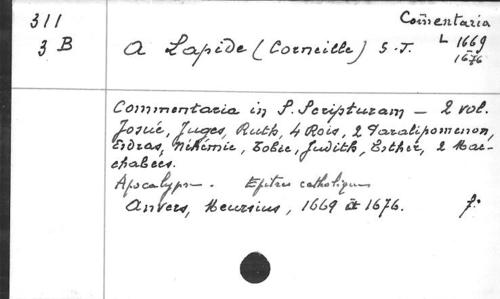 311
3 B
Comentaria
L 1669
1676
A Lapide (Corneille) S.J.
Commentaria in S. Scripturam – 2 vol.
Josué, Juges, Ruth, 4 Rois, 2 Paralipomenon,
Esdras, Néhémie, Tobie, Judith, Esther, 2 Mac-
chabées.
Apocalypse. Epitres catholiques
Anvers, Meursius, 1669 et 1676. f°